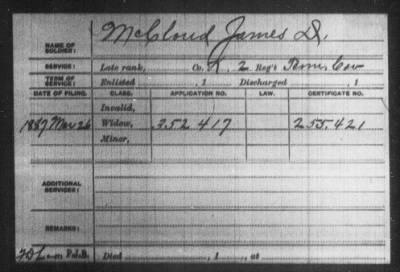 McCloud James D.
NAME OF SOLDIER:
SERVICE: Late rank, Co. K, 2 Reg't Cav
TERM OF SERVICE: Enlisted , 1 Discharged , 1
DATE OF FILING. CLASS. APPLICATION NO. LAW. CERTIFICATE NO.
Invalid,
1887 Mar 26 Widow, 352 417 255.421
Minor,
ADDITIONAL SERVICES:
REMARKS:
P.d.B. Died , 1 , at